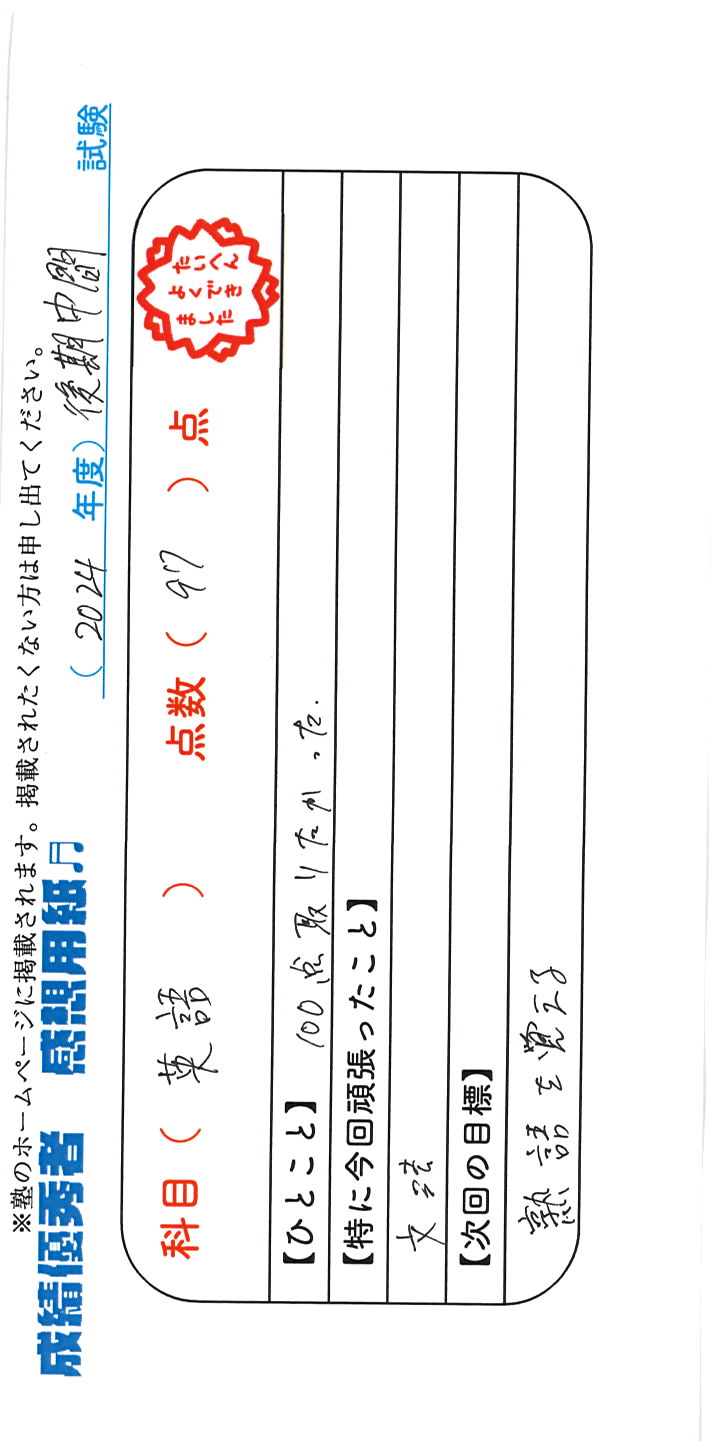 ※塾のホームページに掲載されます。掲載されたくない方は申し出てください。
成績優秀者 感想用紙♫ (2024 年度) 後期中間 試験
科目( 英語 ) 点数( 97 )点
たいへん
よくでき
ました
【ひとこと】 100点取りたかった.
【特に今回頑張ったこと】
文法
【次回の目標】
熟語を覚える